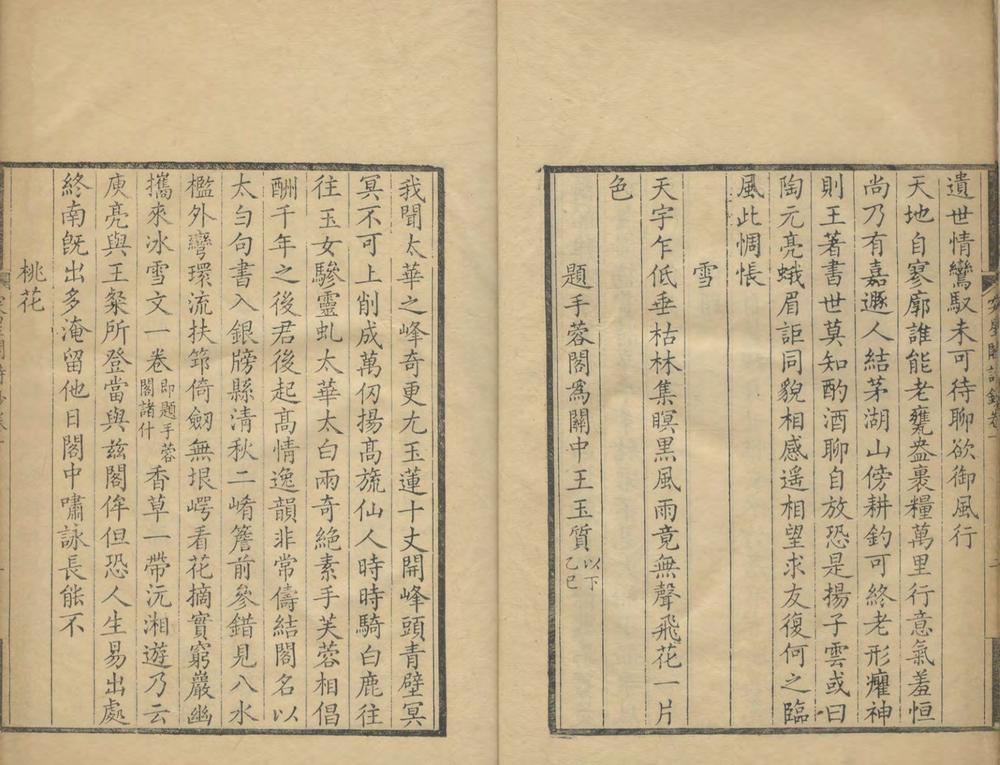 遺世情鸞馭未可待聊欲御風行
天地自寥廓誰能老甕盎裹糧萬里行意氣羞恒
尚乃有嘉遯人結茅湖山傍耕釣可終老形癯神
則王著書世莫知酌酒聊自放恐是揚子雲或曰
陶元亮蛾眉詎同貌相感遥相望求友復何之臨
風此惆悵
雪
天宇乍低垂枯林集暝黑風雨竟無聲飛花一片
色
題手蓉閣爲關中王玉質以下乙巳
我聞太華之峰奇更尤玉蓮十丈開峰頭青壁冥
冥不可上削成萬仞揚高旒仙人時時騎白鹿往
往玉女驂靈虬太華太白兩奇絶素手芙蓉相倡
酬千年之後君後起高情逸韻非常儔結閣名以
太白句書入銀牓縣清秋二崤簷前參錯見八水
檻外彎環流扶筇倚劒無垠崿看花摘實窮巖幽
攜來冰雪文一卷即題手蓉閣諸什香草一帶沅湘遊乃云
庾亮與王粲所登當與兹閣侔但恐人生易出處
終南旣出多淹留他日閣中嘯詠長能不
桃花